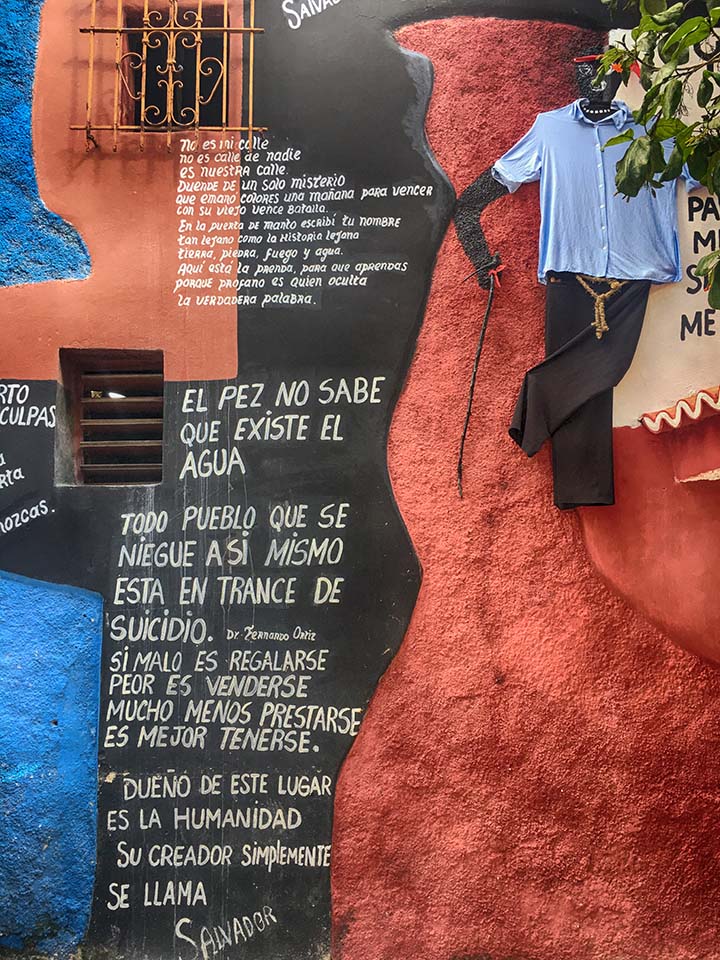 SALVA
No es mi calle
no es calle de nadie
es nuestra calle.
Duende de un solo misterio
que emanó colores una mañana para vencer
con su viejo vence batalla.
En la puerta de manto escribí tu nombre
tan lejano como la historia lejana
tierra, piedra, fuego y agua.
Aquí está la prenda, para que aprendas
porque profano es quien oculta
la verdadera palabra.
RTO
CULPAS
rta
nozcas.
EL PEZ NO SABE
QUE EXISTE EL
AGUA
TODO PUEBLO QUE SE
NIEGUE ASI MISMO
ESTA EN TRANCE DE
SUICIDIO. Dr. Fernando Ortiz
SI MALO ES REGALARSE
PEOR ES VENDERSE
MUCHO MENOS PRESTARSE
ES MEJOR TENERSE.
DUEÑO DE ESTE LUGAR
ES LA HUMANIDAD
SU CREADOR SIMPLEMENTE
SE LLAMA
SALVADOR
PA
M
S
ME